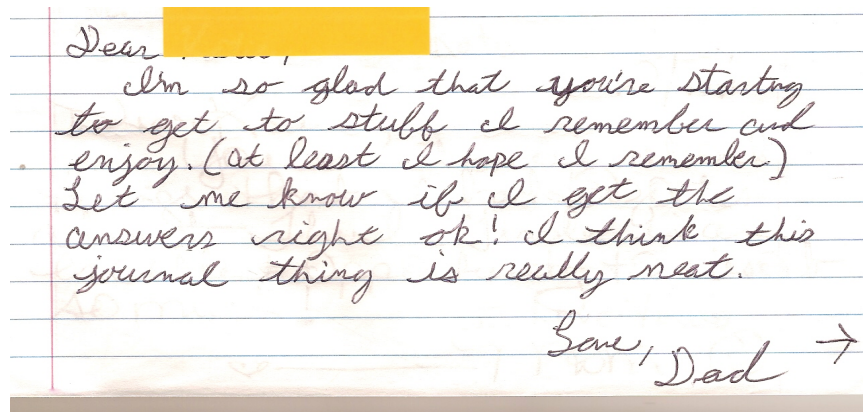 Dear
I'm so glad that you're startng
to get to stuff I remember and
enjoy. (at least I hope I remember)
Let me know if I get the
answers right ok! I think this
journal thing is really neat.
Love,
Dad →